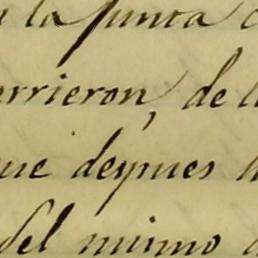 la Junta
rrieron, de l
ue depues
del mismo